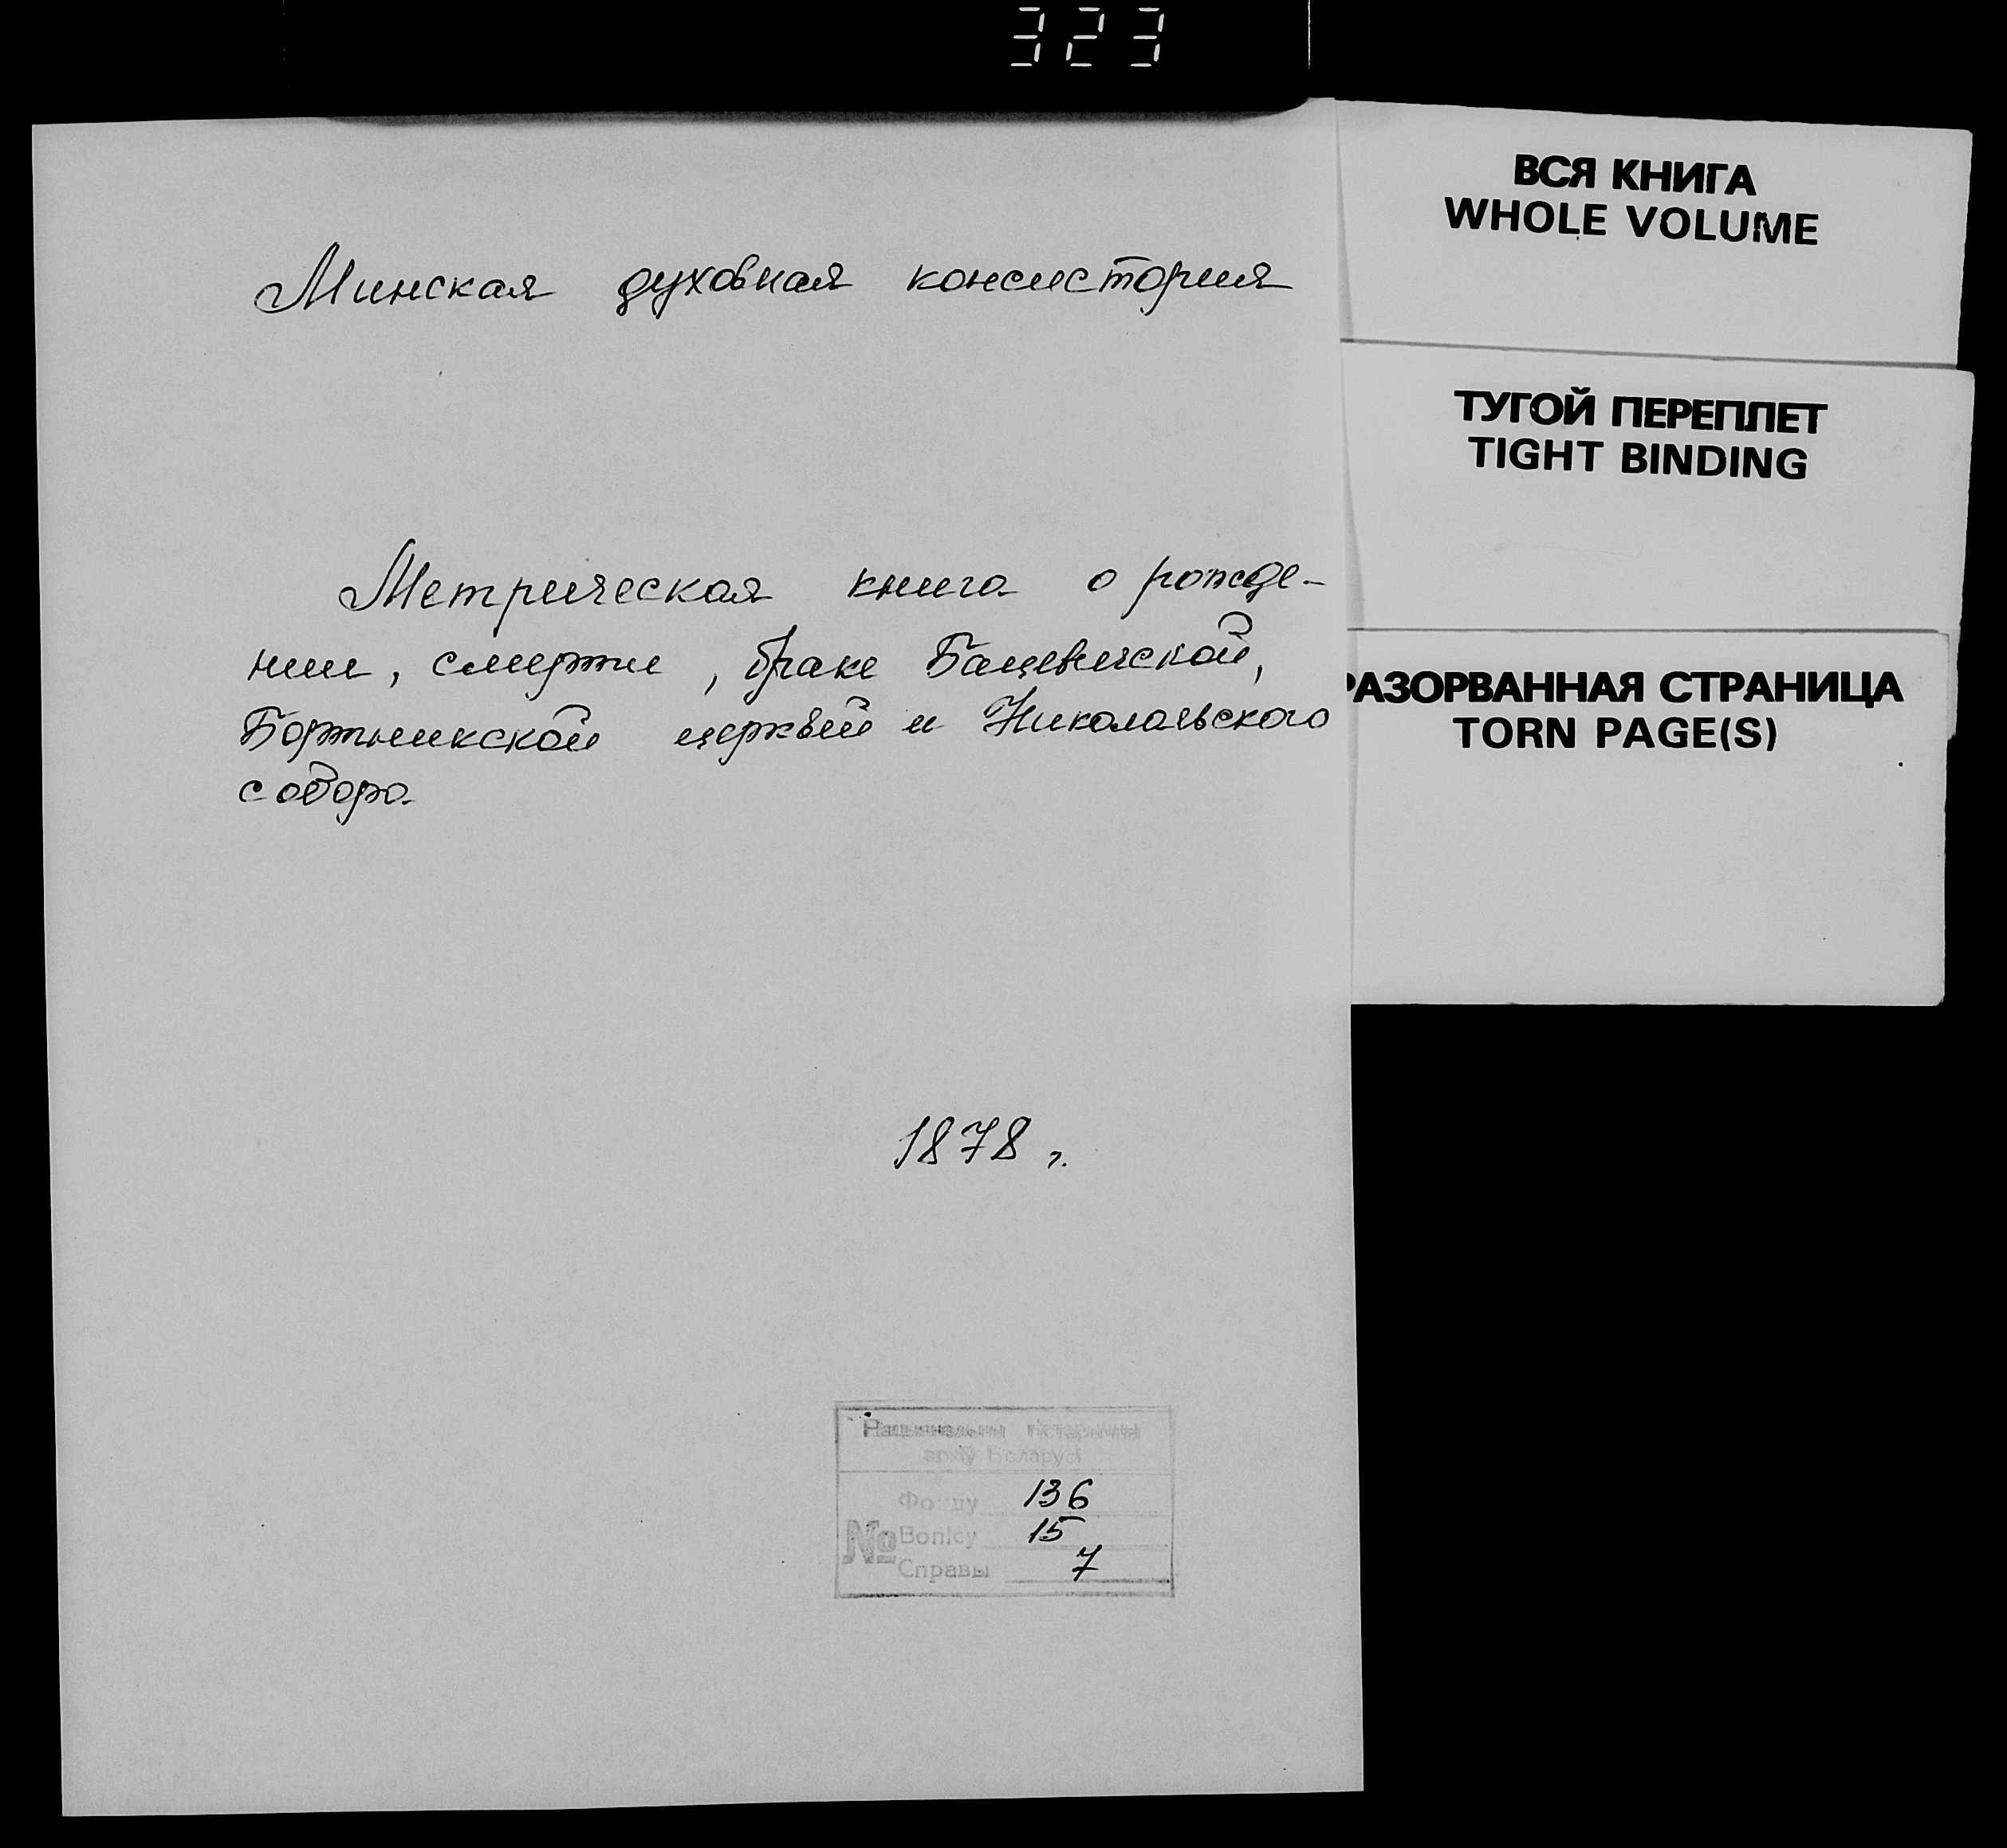 323
Минская духовная консистория
Метрическая книга о рожде-
нии, смерти, браке Бацевичской,
Бортникской церквей и Николаевского
собора
1878 г.
Нацыянальны гістарычны
архіў Беларусі
Фонду 136
№ Вопісу 15
Справы 7
ВСЯ КНИГА
WHOLE VOLUME
ТУГОЙ ПЕРЕПЛЕТ
TIGHT BINDING
РАЗОРВАННАЯ СТРАНИЦА
TORN PAGE(S)